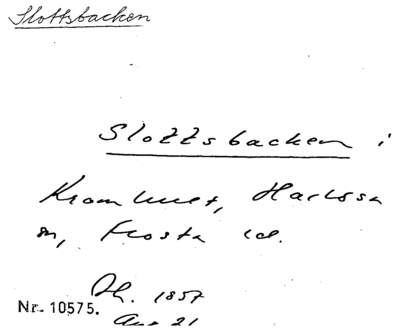 Slottsbacken
Slottsbacken i
Harlösa
sn, Frosta hd.
1857
Nr. 10575.
Aug 21